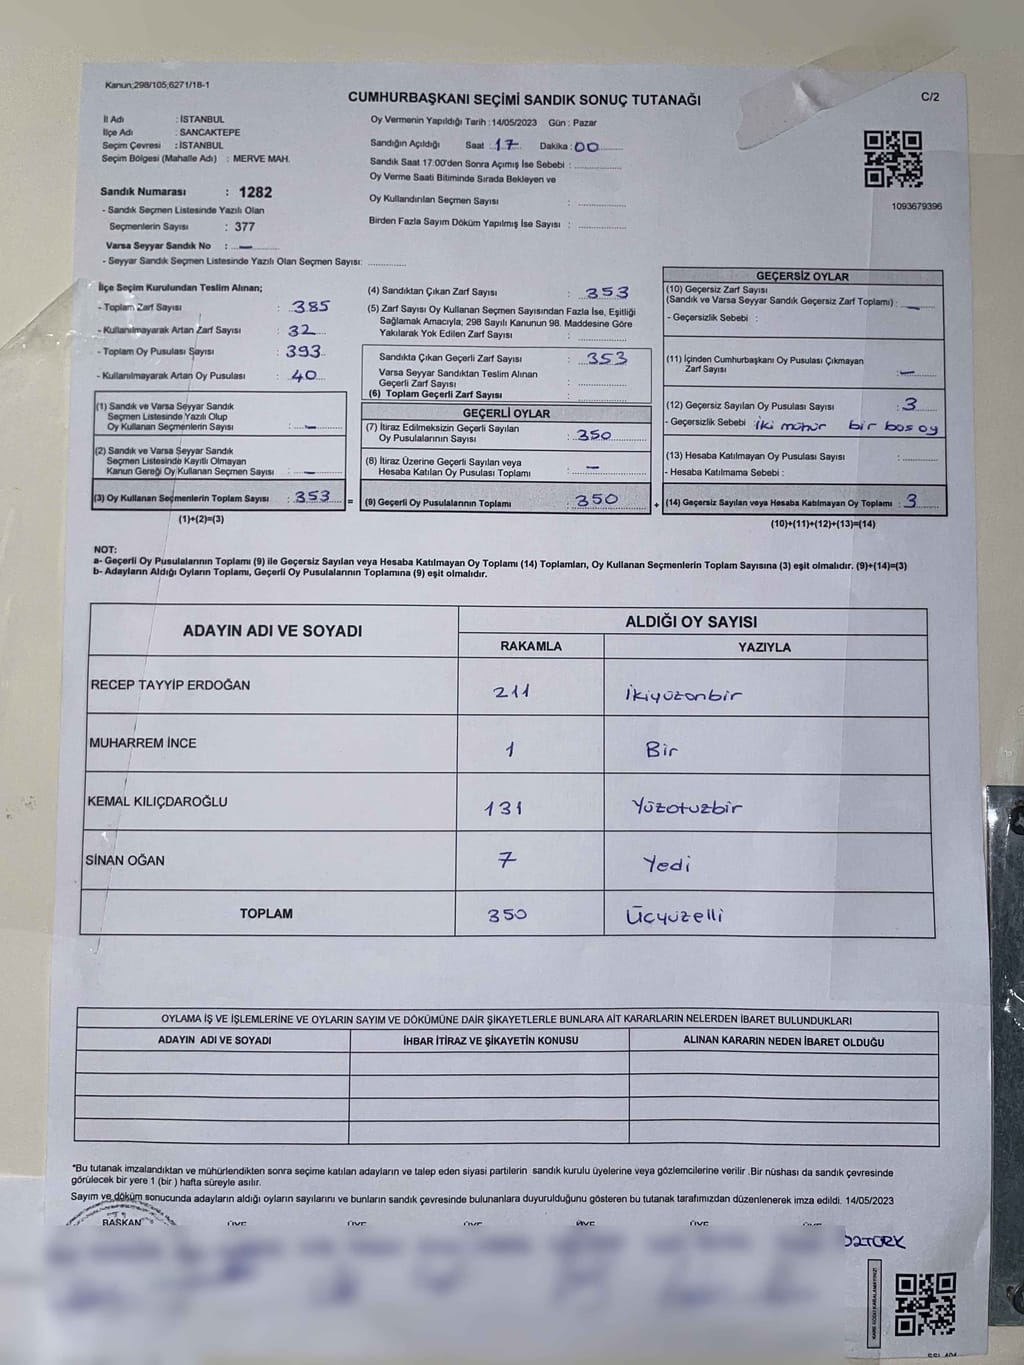 Kanun;298/105;6271/18-1
CUMHURBAŞKANI SEÇİMİ SANDIK SONUÇ TUTANAĞI
C/2
İl Adı : İSTANBUL
İlçe Adı : SANCAKTEPE
Seçim Çevresi : İSTANBUL
Seçim Bölgesi (Mahalle Adı) : MERVE MAH.
Sandık Numarası : 1282
- Sandık Seçmen Listesinde Yazılı Olan
Seçmenlerin Sayısı : 377
Varsa Seyyar Sandık No : —
- Seyyar Sandık Seçmen Listesinde Yazılı Olan Seçmen Sayısı:
Oy Vermenin Yapıldığı Tarih : 14/05/2023 Gün : Pazar
Sandığın Açıldığı Saat : 17 Dakika : 00
Sandık Saat 17:00'den Sonra Açımış İse Sebebi :
Oy Verme Saati Bitiminde Sırada Bekleyen ve
Oy Kullandırılan Seçmen Sayısı :
Birden Fazla Sayım Döküm Yapılmış İse Sayısı :
1093679396
İlçe Seçim Kurulundan Teslim Alınan;
- Toplam Zarf Sayısı : 385
- Kullanılmayarak Artan Zarf Sayısı : 32
- Toplam Oy Pusulası Sayısı : 393
- Kullanılmayarak Artan Oy Pusulası : 40
(1) Sandık ve Varsa Seyyar Sandık
Seçmen Listesinde Yazılı Olup
Oy Kullanan Seçmenlerin Sayısı : —
(2) Sandık ve Varsa Seyyar Sandık
Seçmen Listesinde Kayıtlı Olmayan
Kanun Gereği Oy Kullanan Seçmen Sayısı : —
(3) Oy Kullanan Seçmenlerin Toplam Sayısı : 353 =
(1)+(2)=(3)
(4) Sandıktan Çıkan Zarf Sayısı : 353
(5) Zarf Sayısı Oy Kullanan Seçmen Sayısından Fazla İse, Eşitliği
Sağlamak Amacıyla; 298 Sayılı Kanunun 98. Maddesine Göre
Yakılarak Yok Edilen Zarf Sayısı :
Sandıkta Çıkan Geçerli Zarf Sayısı : 353
Varsa Seyyar Sandıktan Teslim Alınan
Geçerli Zarf Sayısı :
(6) Toplam Geçerli Zarf Sayısı :
GEÇERLİ OYLAR
(7) İtiraz Edilmeksizin Geçerli Sayılan
Oy Pusulalarının Sayısı : 350
(8) İtiraz Üzerine Geçerli Sayılan veya
Hesaba Katılan Oy Pusulası Toplamı : —
(9) Geçerli Oy Pusulalarının Toplamı : 350 +
GEÇERSİZ OYLAR
(10) Geçersiz Zarf Sayısı
(Sandık ve Varsa Seyyar Sandık Geçersiz Zarf Toplamı) : —
- Geçersizlik Sebebi :
(11) İçinden Cumhurbaşkanı Oy Pusulası Çıkmayan
Zarf Sayısı : —
(12) Geçersiz Sayılan Oy Pusulası Sayısı : 3
- Geçersizlik Sebebi iki mühür bir boş oy
(13) Hesaba Katılmayan Oy Pusulası Sayısı :
- Hesaba Katılmama Sebebi :
(14) Geçersiz Sayılan veya Hesaba Katılmayan Oy Toplamı : 3
(10)+(11)+(12)+(13)=(14)
NOT:
a- Geçerli Oy Pusulalarının Toplamı (9) ile Geçersiz Sayılan veya Hesaba Katılmayan Oy Toplamı (14) Toplamları, Oy Kullanan Seçmenlerin Toplam Sayısına (3) eşit olmalıdır. (9)+(14)=(3)
b- Adayların Aldığı Oyların Toplamı, Geçerli Oy Pusulalarının Toplamına (9) eşit olmalıdır.
ADAYIN ADI VE SOYADI
ALDIĞI OY SAYISI
RAKAMLA YAZIYLA
RECEP TAYYİP ERDOĞAN 211 İkiyüzonbir
MUHARREM İNCE 1 Bir
KEMAL KILIÇDAROĞLU 131 Yüzotuzbir
SİNAN OĞAN 7 Yedi
TOPLAM 350 Üçyüzelli
OYLAMA İŞ VE İŞLEMLERİNE VE OYLARIN SAYIM VE DÖKÜMÜNE DAİR ŞİKAYETLERLE BUNLARA AİT KARARLARIN NELERDEN İBARET BULUNDUKLARI
ADAYIN ADI VE SOYADI İHBAR İTİRAZ VE ŞİKAYETİN KONUSU ALINAN KARARIN NEDEN İBARET OLDUĞU
*Bu tutanak imzalandıktan ve mühürlendikten sonra seçime katılan adayların ve talep eden siyasi partilerin sandık kurulu üyelerine veya gözlemcilerine verilir .Bir nüshası da sandık çevresinde
görülecek bir yere 1 (bir ) hafta süreyle asılır.
Sayım ve döküm sonucunda adayların aldığı oyların sayılarını ve bunların sandık çevresinde bulunanlara duyurulduğunu gösteren bu tutanak tarafımızdan düzenlenerek imza edildi. 14/05/2023
BAŞKAN ÜYE ÜYE ÜYE ÜYE ÜYE ÜYE
ÖZTÜRK